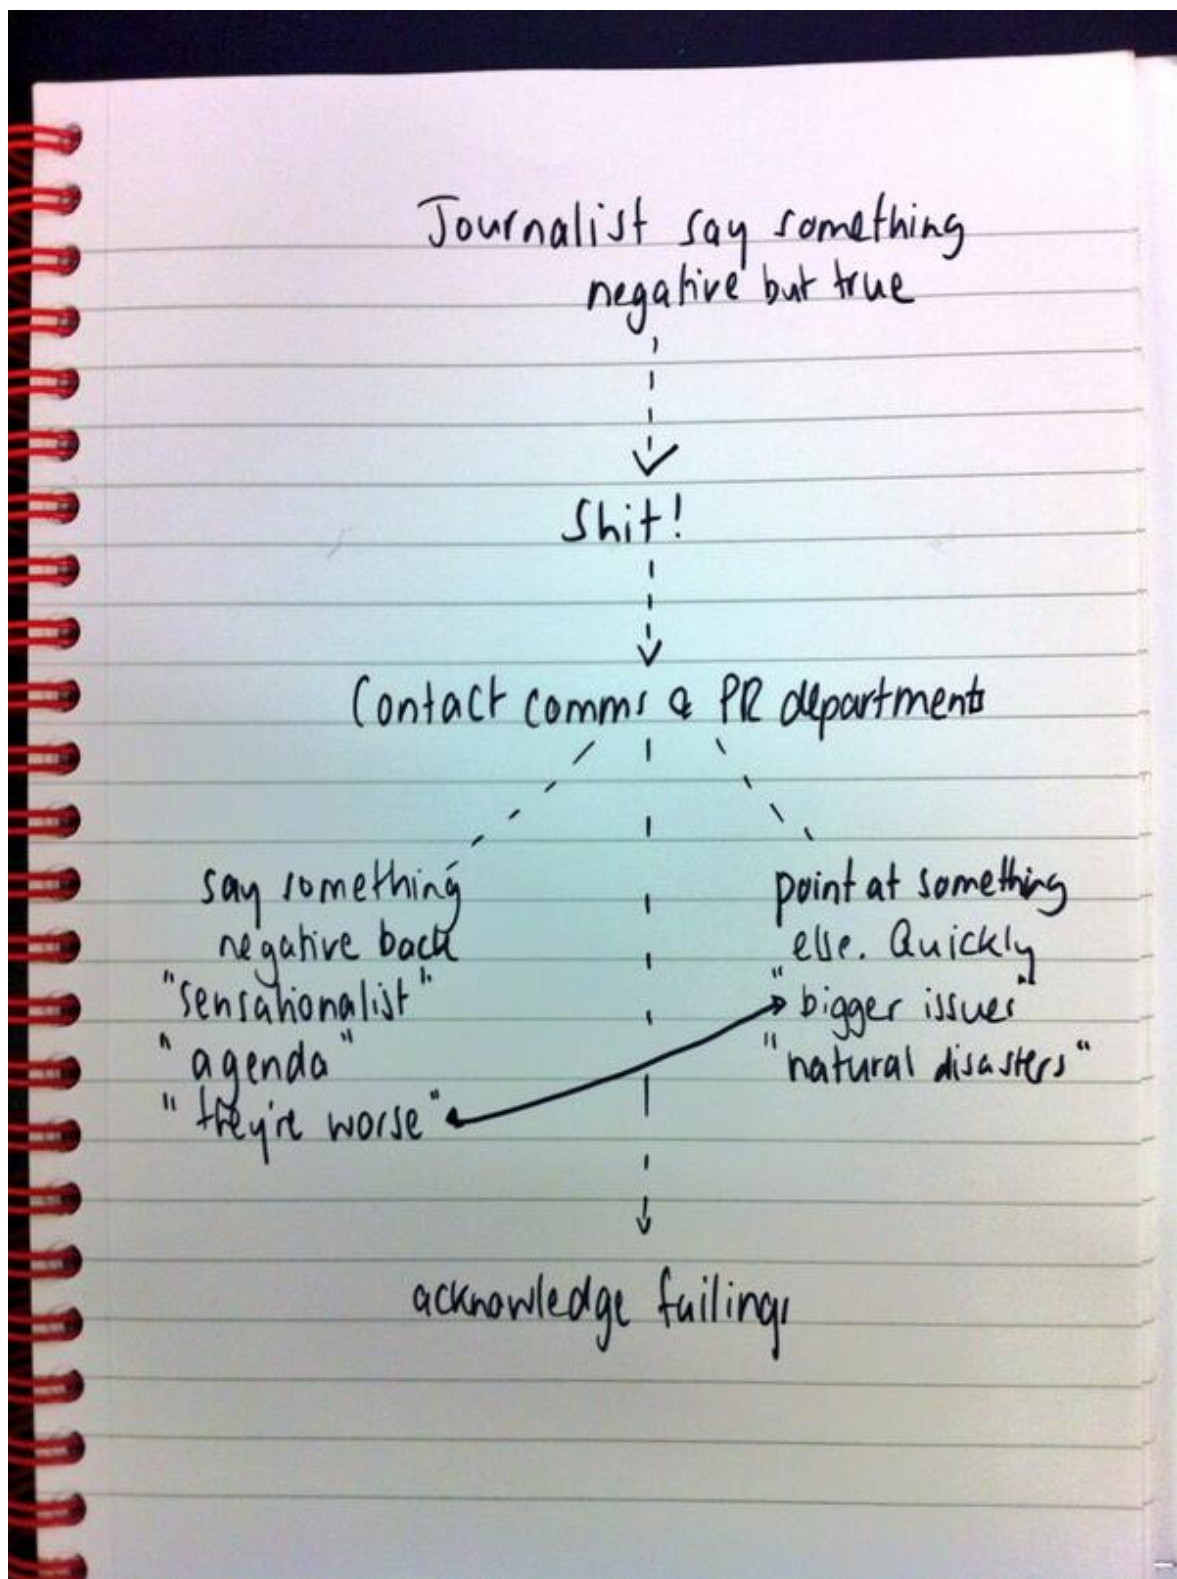 Journalist say something
negative but true
Shit!
Contact comms & PR departments
say something
negative back
"sensationalist"
"agenda"
"they're worse"
point at something
else. Quickly
"bigger issues"
"natural disasters"
acknowledge failings